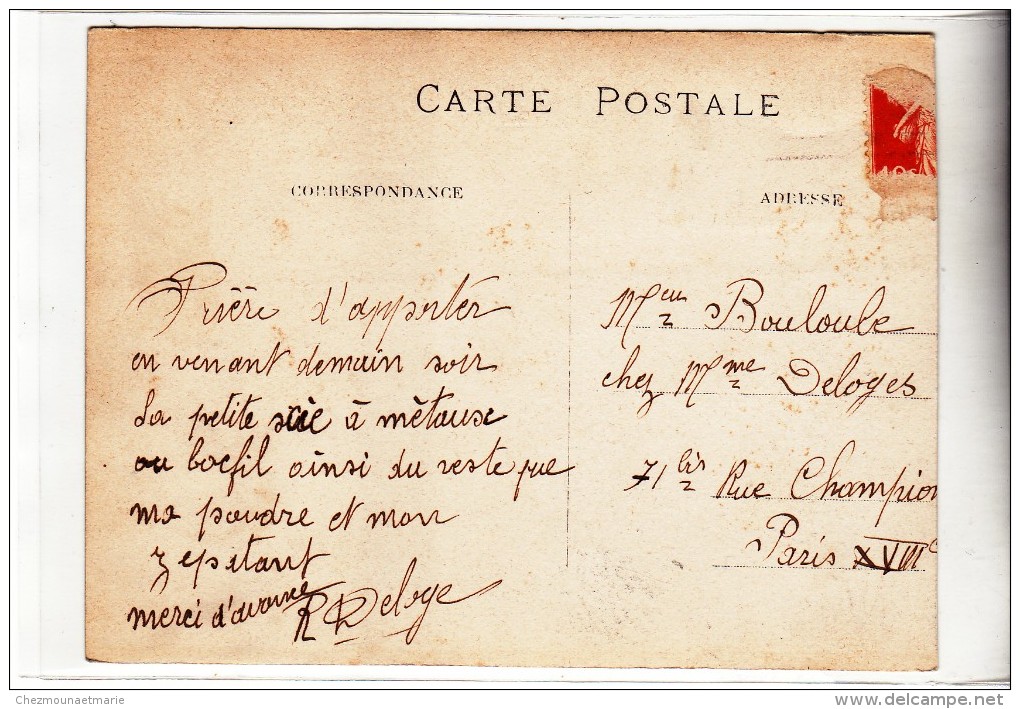 CARTE POSTALE
CORRESPONDANCE
ADRESSE
10c
Prière d'apporter
en venant demain soir
La petite scie à métaux
ou bocfil ainsi du reste que
ma poudre et mon
merci d'avance
R Deloge
Meu Bouloube
chez Mme Deloges
71 bis Rue Champion
Paris XVIIIe
Chezmounaetmarie
delcampe.net